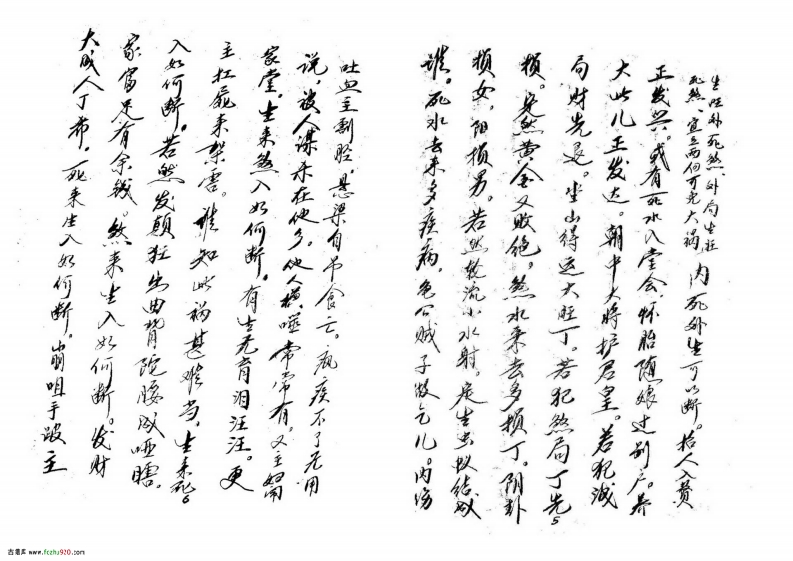 生旺外死煞、外局生旺
死煞、宜立两向可免大祸,
内死外生可以断。招人入赘
正发兴。或有死水入堂会,怀胎随娘过别户。养
大此儿正发达。朝中大将护君皇。若犯减
局财先退。坐山得运大旺丁。若犯煞局丁先
5
损。安然黄金又败绝。煞水来去多损丁。阴卦
损女,阳损男。若然流小水射。是生虫蚁结成
堆。死水去来多疾病,龟公贼子做乞儿。内伤
吐血主刮腔。悬梁自吊食亡。疾不了无用
说,被人谋杀在他乡。他人横哑常常有。又主
家堂,生来煞入如何断,有生无育泪汪汪。更
主扛尸来架害。谁知此祸甚难当,生来死
6
入如何断。若然发颠狂出曲背驼腰成哑瞎。
家富足有余钱。煞来生入如何断。发财
大成人丁希,死来生入如何断。崩咀手跛主
古籍库 www.fczhu920.com